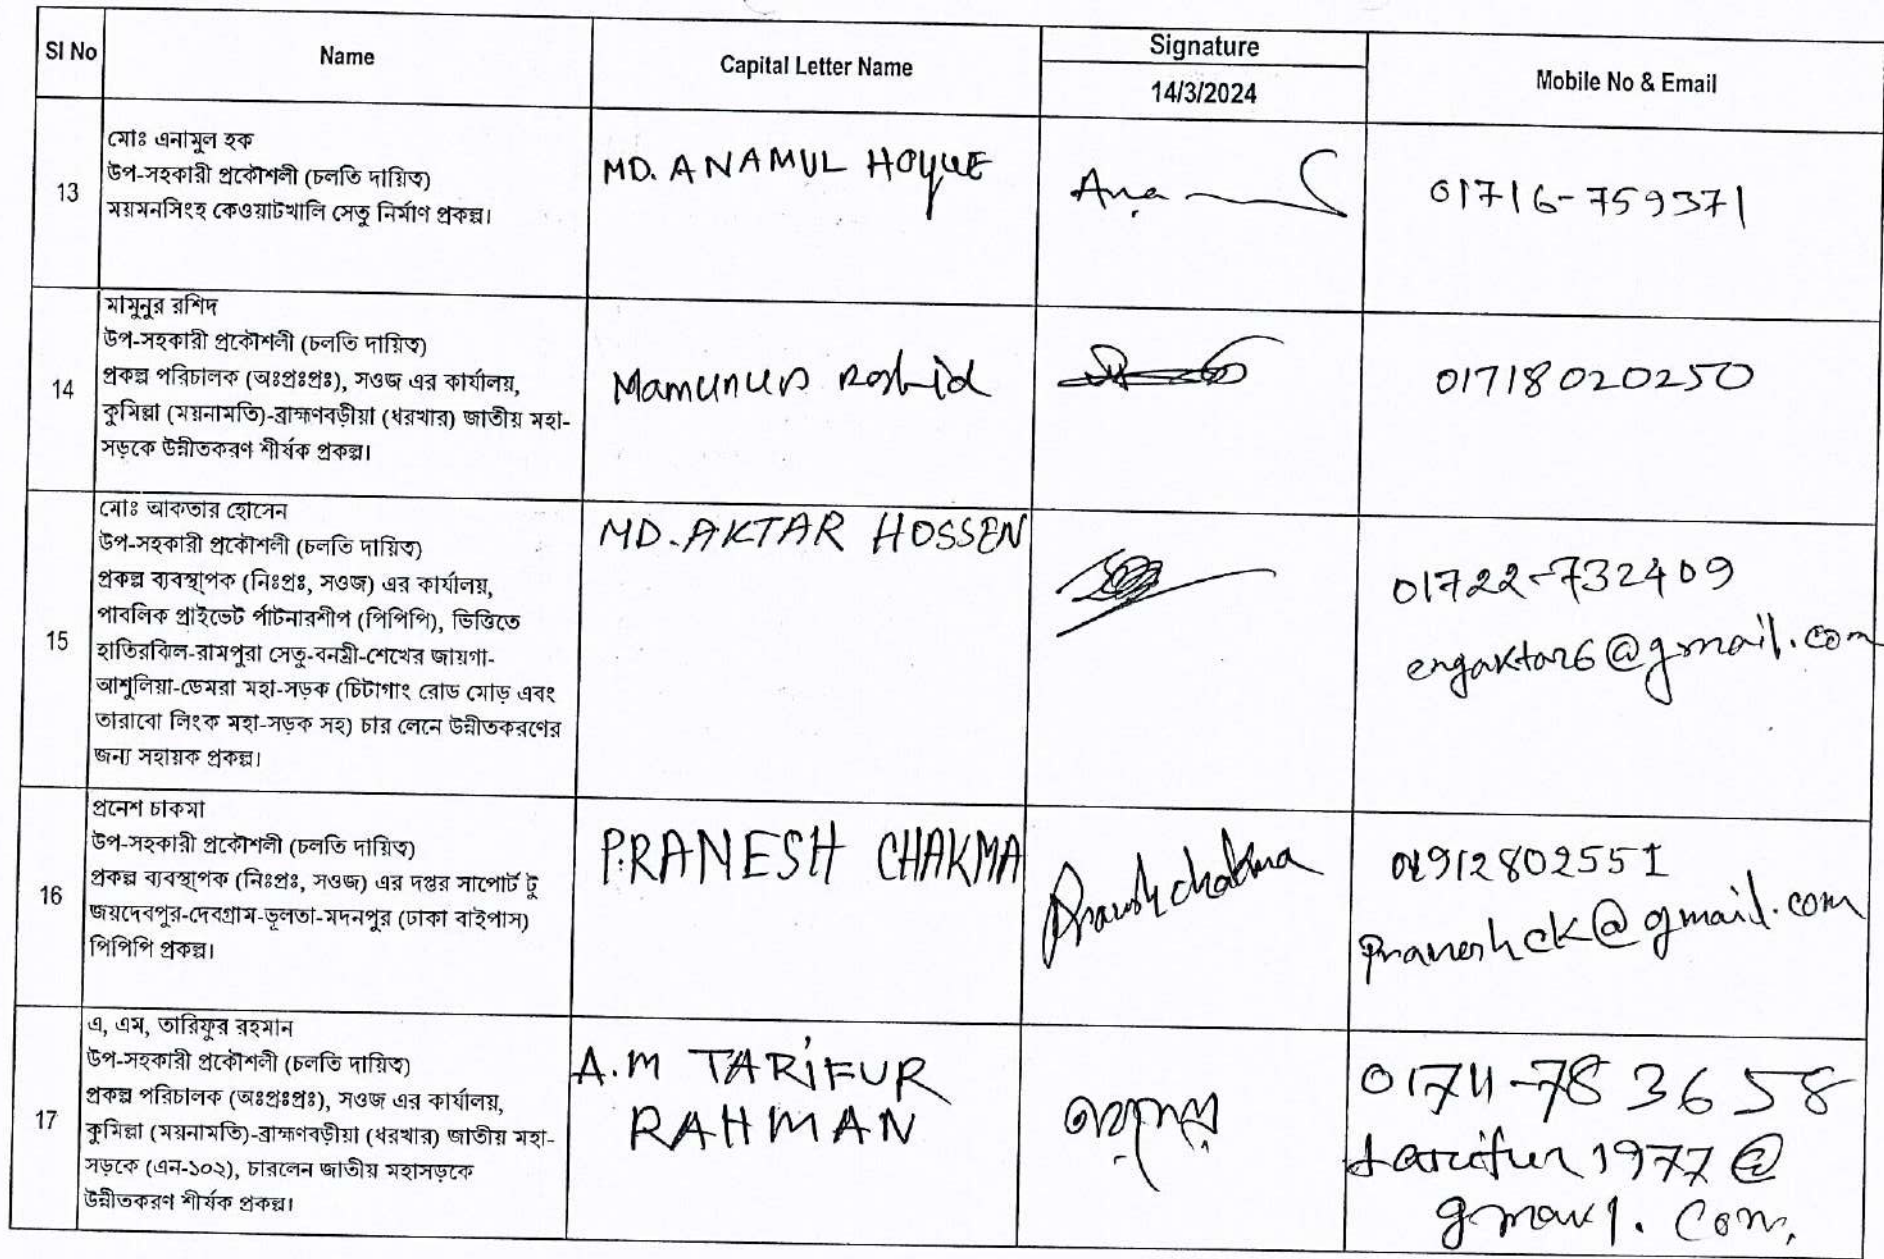 Sl No
Name
Capital Letter Name
Signature
14/3/2024
Mobile No & Email
13
মোঃ এনামুল হক
উপ-সহকারী প্রকৌশলী (চলতি দায়িত্ব)
ময়মনসিংহ কেওয়াটখালি সেতু নির্মাণ প্রকল্প।
MD. ANAMUL HOQUE
Ana
01716-759371
14
মামুনুর রশিদ
উপ-সহকারী প্রকৌশলী (চলতি দায়িত্ব)
প্রকল্প পরিচালক (অঃপ্রঃপ্রঃ), সওজ এর কার্যালয়,
কুমিল্লা (ময়নামতি)-ব্রাহ্মণবড়ীয়া (ধরখার) জাতীয় মহা-
সড়কে উন্নীতকরণ শীর্ষক প্রকল্প।
Mamunur Roshid
01718020250
15
মোঃ আকতার হোসেন
উপ-সহকারী প্রকৌশলী (চলতি দায়িত্ব)
প্রকল্প ব্যবস্থাপক (নিঃপ্রঃ, সওজ) এর কার্যালয়,
পাবলিক প্রাইভেট র্পাটনারশীপ (পিপিপি), ভিত্তিতে
হাতিরঝিল-রামপুরা সেতু-বনশ্রী-শেখের জায়গা-
আশুলিয়া-ডেমরা মহা-সড়ক (চিটাগাং রোড মোড় এবং
তারাবো লিংক মহা-সড়ক সহ) চার লেনে উন্নীতকরণের
জন্য সহায়ক প্রকল্প।
MD. AKTAR HOSSEN
01722-732409
engaktar6@gmail.com
16
প্রনেশ চাকমা
উপ-সহকারী প্রকৌশলী (চলতি দায়িত্ব)
প্রকল্প ব্যবস্থাপক (নিঃপ্রঃ, সওজ) এর দপ্তর সাপোর্ট টু
জয়দেবপুর-দেবগ্রাম-ভূলতা-মদনপুর (ঢাকা বাইপাস)
পিপিপি প্রকল্প।
PRANESH CHAKMA
Pranesh chakma
01912802551
praneshck@gmail.com
17
এ, এম, তারিফুর রহমান
উপ-সহকারী প্রকৌশলী (চলতি দায়িত্ব)
প্রকল্প পরিচালক (অঃপ্রঃপ্রঃ), সওজ এর কার্যালয়,
কুমিল্লা (ময়নামতি)-ব্রাহ্মণবড়ীয়া (ধরখার) জাতীয় মহা-
সড়কে (এন-১০২), চারলেন জাতীয় মহাসড়কে
উন্নীতকরণ শীর্ষক প্রকল্প।
A.M TARIFUR
RAHMAN
tarifur1977@
gmail.com,